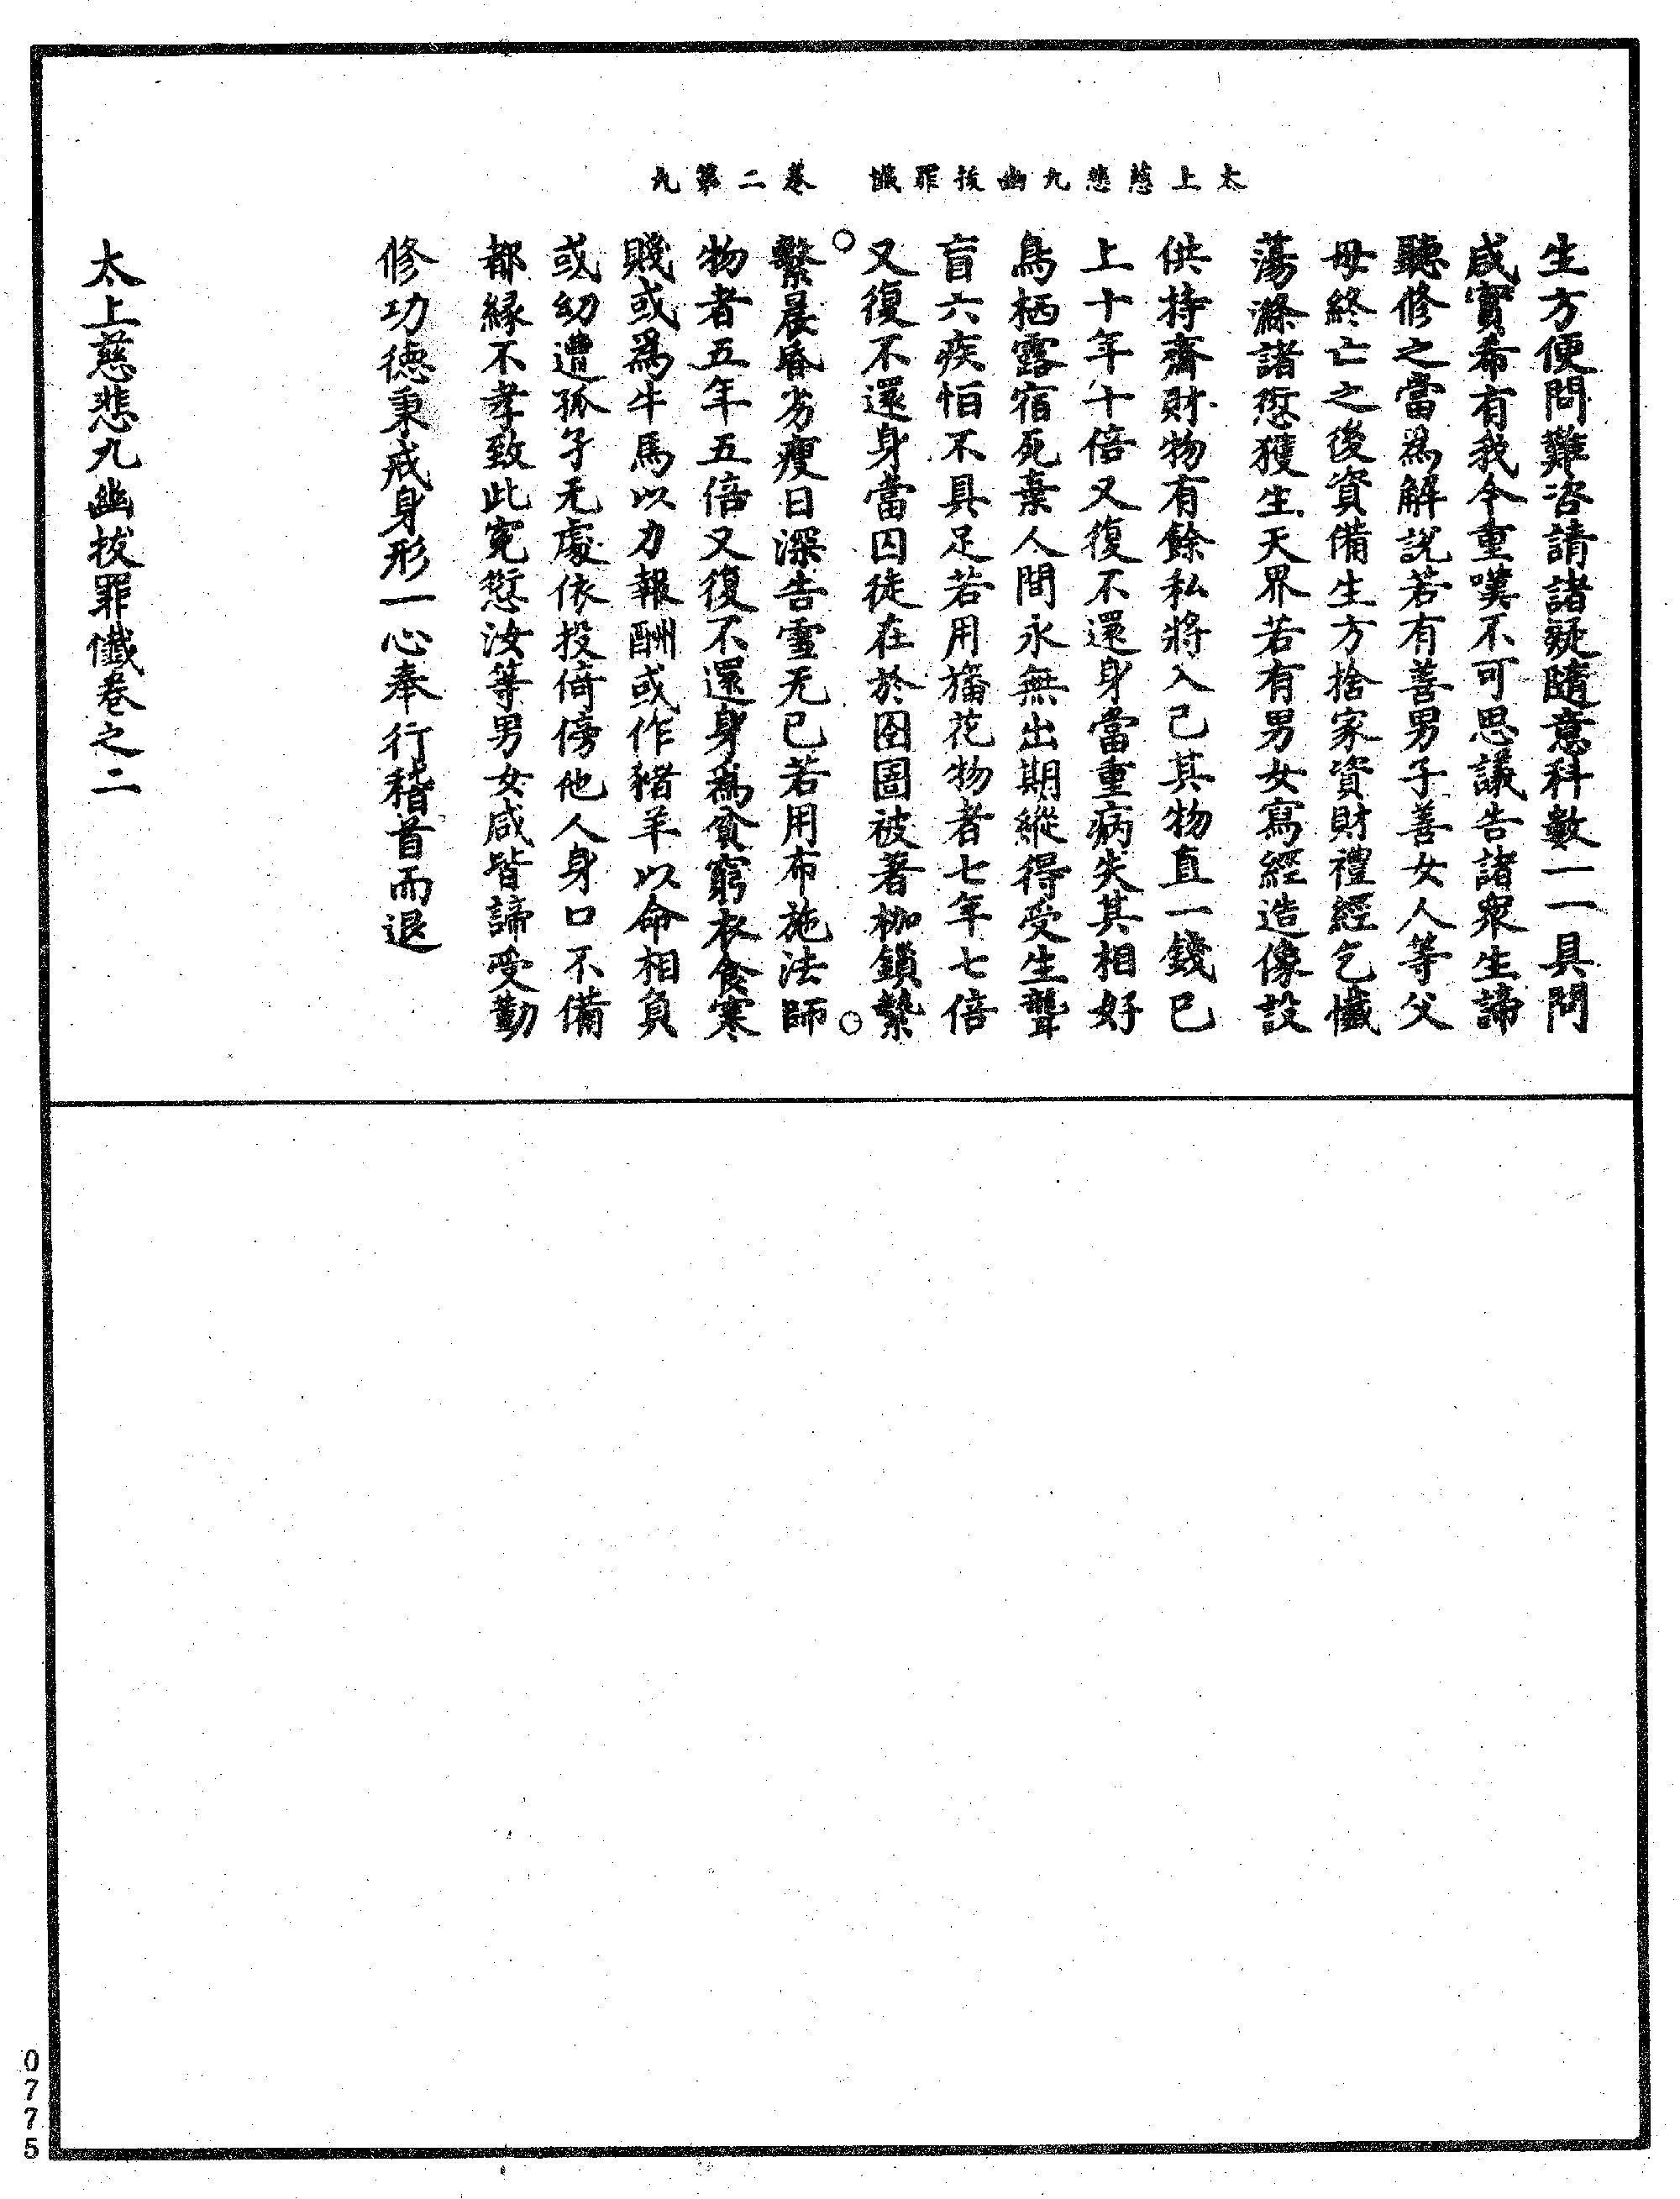 太上慈悲九幽拔罪懺　卷二第九
生方便問難咨請諸疑隨意科數一一具問
咸實希有我今重嘆不可思議告諸衆生諦
聽修之當爲解說若有善男子善女人等父
母終亡之後資備生方捨家資財禮經乞懺
蕩滌諸愆獲生天界若有男女寫經造像設
供持齋財物有餘私將入己其物直一錢已
上十年十倍又復不還身當重病失其相好
鳥栖露宿死棄人間永無出期縱得受生聾
盲六疾怕不具足若用旛花物者七年七倍
又復不還身當囚徒在於囹圄被著枷鎖縶
繫晨昏劣瘦日深告靈无已若用布施法師
物者五年五倍又復不還身爲貧窮衣食寒
賤或爲牛馬以力報酬或作豬羊以命相負
或幼遭孤孑无處依投倚傍他人身口不備
都緣不孝致此冤愆汝等男女咸皆諦受勤
修功德秉戒身形一心奉行稽首而退
太上慈悲九幽拔罪懺卷之二
0775